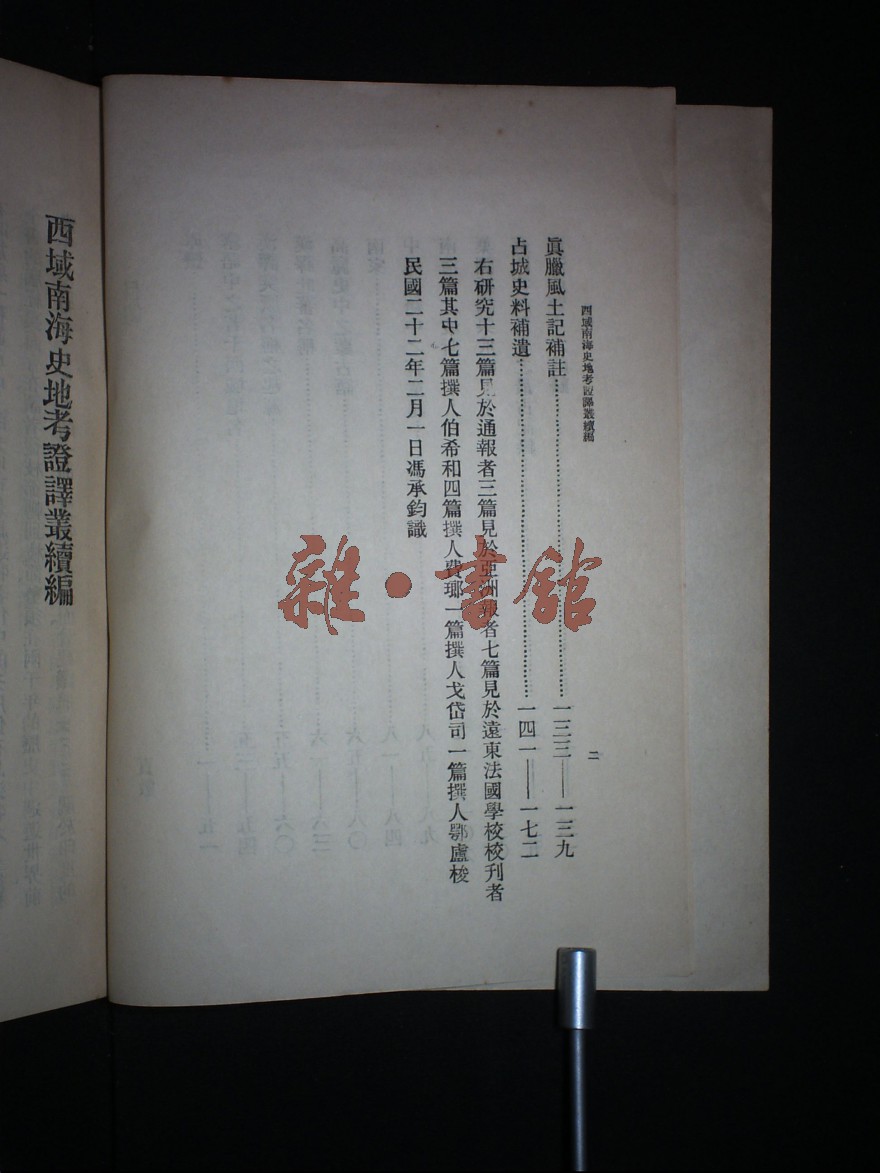 西域南海史地考證譯叢續編
二
眞臘風土記補註……一三三——一三九
占城史料補遺……一四一——一七二
右研究十三篇見於通報者三篇見於亞洲報者七篇見於遠東法國學校校刊者
三篇其中七篇撰人伯希和四篇撰人費瑯一篇撰人戈岱司一篇撰人鄂盧梭
民國二十二年二月一日馮承鈞識
西域南海史地考證譯叢續編
雜·書館